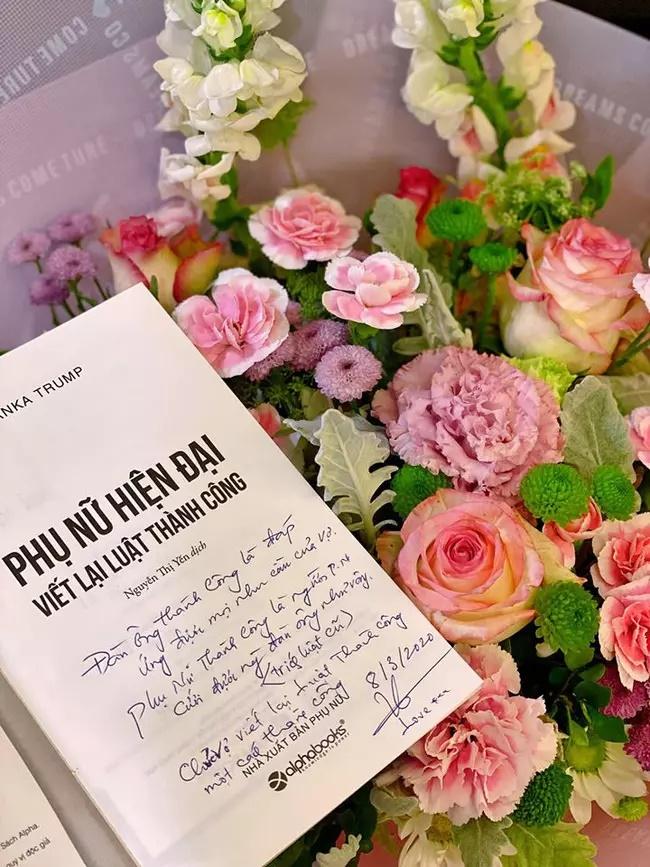 COME TURE
DREAMS CO
COME TURE
DREAMS CO
ANKA TRUMP
PHỤ NỮ HIỆN ĐẠI
VIẾT LẠI LUẬT THÀNH CÔNG
Nguyễn Thị Yến dịch
Đàn ông thành Công là đáp
ứng được mọi nhu cầu của vợ.
Phụ Nữ Thành Công là người P.nữ
Cưới được ng đàn ông như vậy.
(triết luật cũ)
Chúc vợ viết lại Luật Thành Công
một cách thành công
8/3/2020
Love
alphabooks®
NHÀ XUẤT BẢN PHỤ NỮ
Sách Alpha
quý vị độc giả